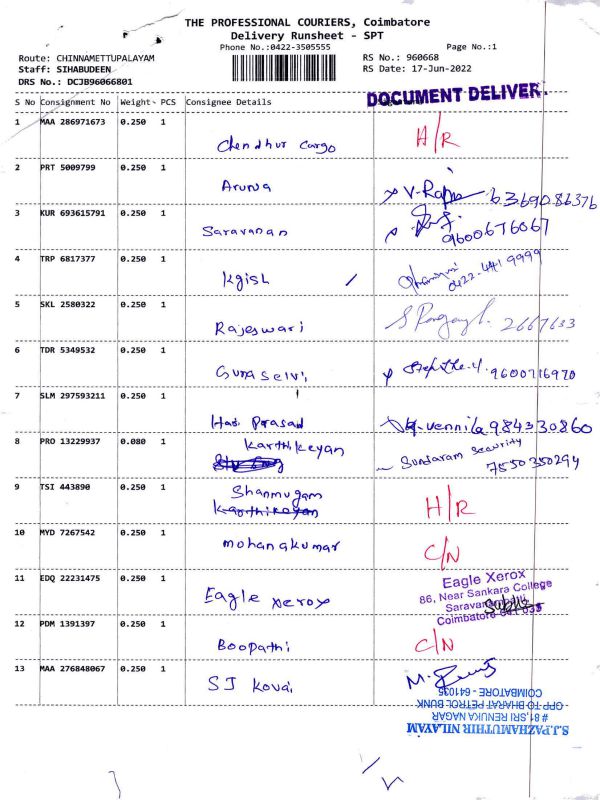 THE PROFESSIONAL COURIERS, Coimbatore
Delivery Runsheet - SPT
Phone No.:0422-3505555
Page No.:1
Route: CHINNAMETTUPALAYAM
Staff: SIHABUDEEN
DRS No.: DCJB96066801
RS No.: 960668
RS Date: 17-Jun-2022
DOCUMENT DELIVER.
S No Consignment No Weight PCS Consignee Details
1 MAA 286971673 0.250 1
Chendhur Cargo H/R
2 PRT 5009799 0.250 1
Aruna V. 6369086376
3 KUR 693615791 0.250 1
Saravanan 9600676067
4 TRP 6817377 0.250 1
Kgish / 0422-441 9999
5 SKL 2580322 0.250 1
Rajeswari 2667633
6 TDR 5349532 0.250 1
Gunaselvi 9600716970
7 SLM 297593211 0.250 1
Hari Prasad vennila 984330860
8 PRO 13229937 0.080 1
Karthikeyan Sundaram Security
7550350294
9 TSI 443890 0.250 1
Shanmugam
Karthikeyan H/R
10 MYD 7267542 0.250 1
mohanakumar C/N
11 EDQ 22231475 0.250 1
Eagle xerox
Eagle Xerox
86, Near Sankara College
Coimbatore
12 PDM 1391397 0.250 1
Boopathi C/N
13 MAA 276848067 0.250 1
SJ Kovai M.
COIMBATORE - 641035
OPP TO BHARAT PETROL BUNK
# 81, SRI RENUKA NAGAR
S.J.PAZHAMUTHIR NILAYAM